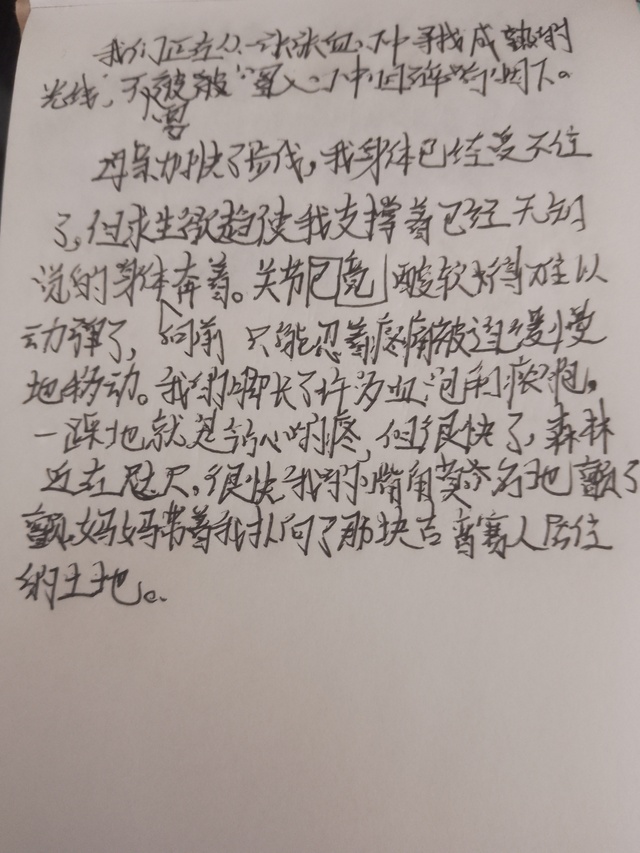 我们正在从一张张血口中寻找成熟的
光线,不要被
母亲加快了步伐,我身体已经受不住
了,但求生欲趋使我支撑着已经无知
说的身体奔着。关节已竟酸软好得难以
动弹了,向前只能忍着疼痛被迫缓慢
地移动。我的脚长了许多血泡和脓疱,
一踩地就是钻心的疼,但很快了,森林
近在咫尺,很快我的小嘴角莫名地颤了
颤,妈妈带着我扑向了那块吉普赛人居住
的土地。